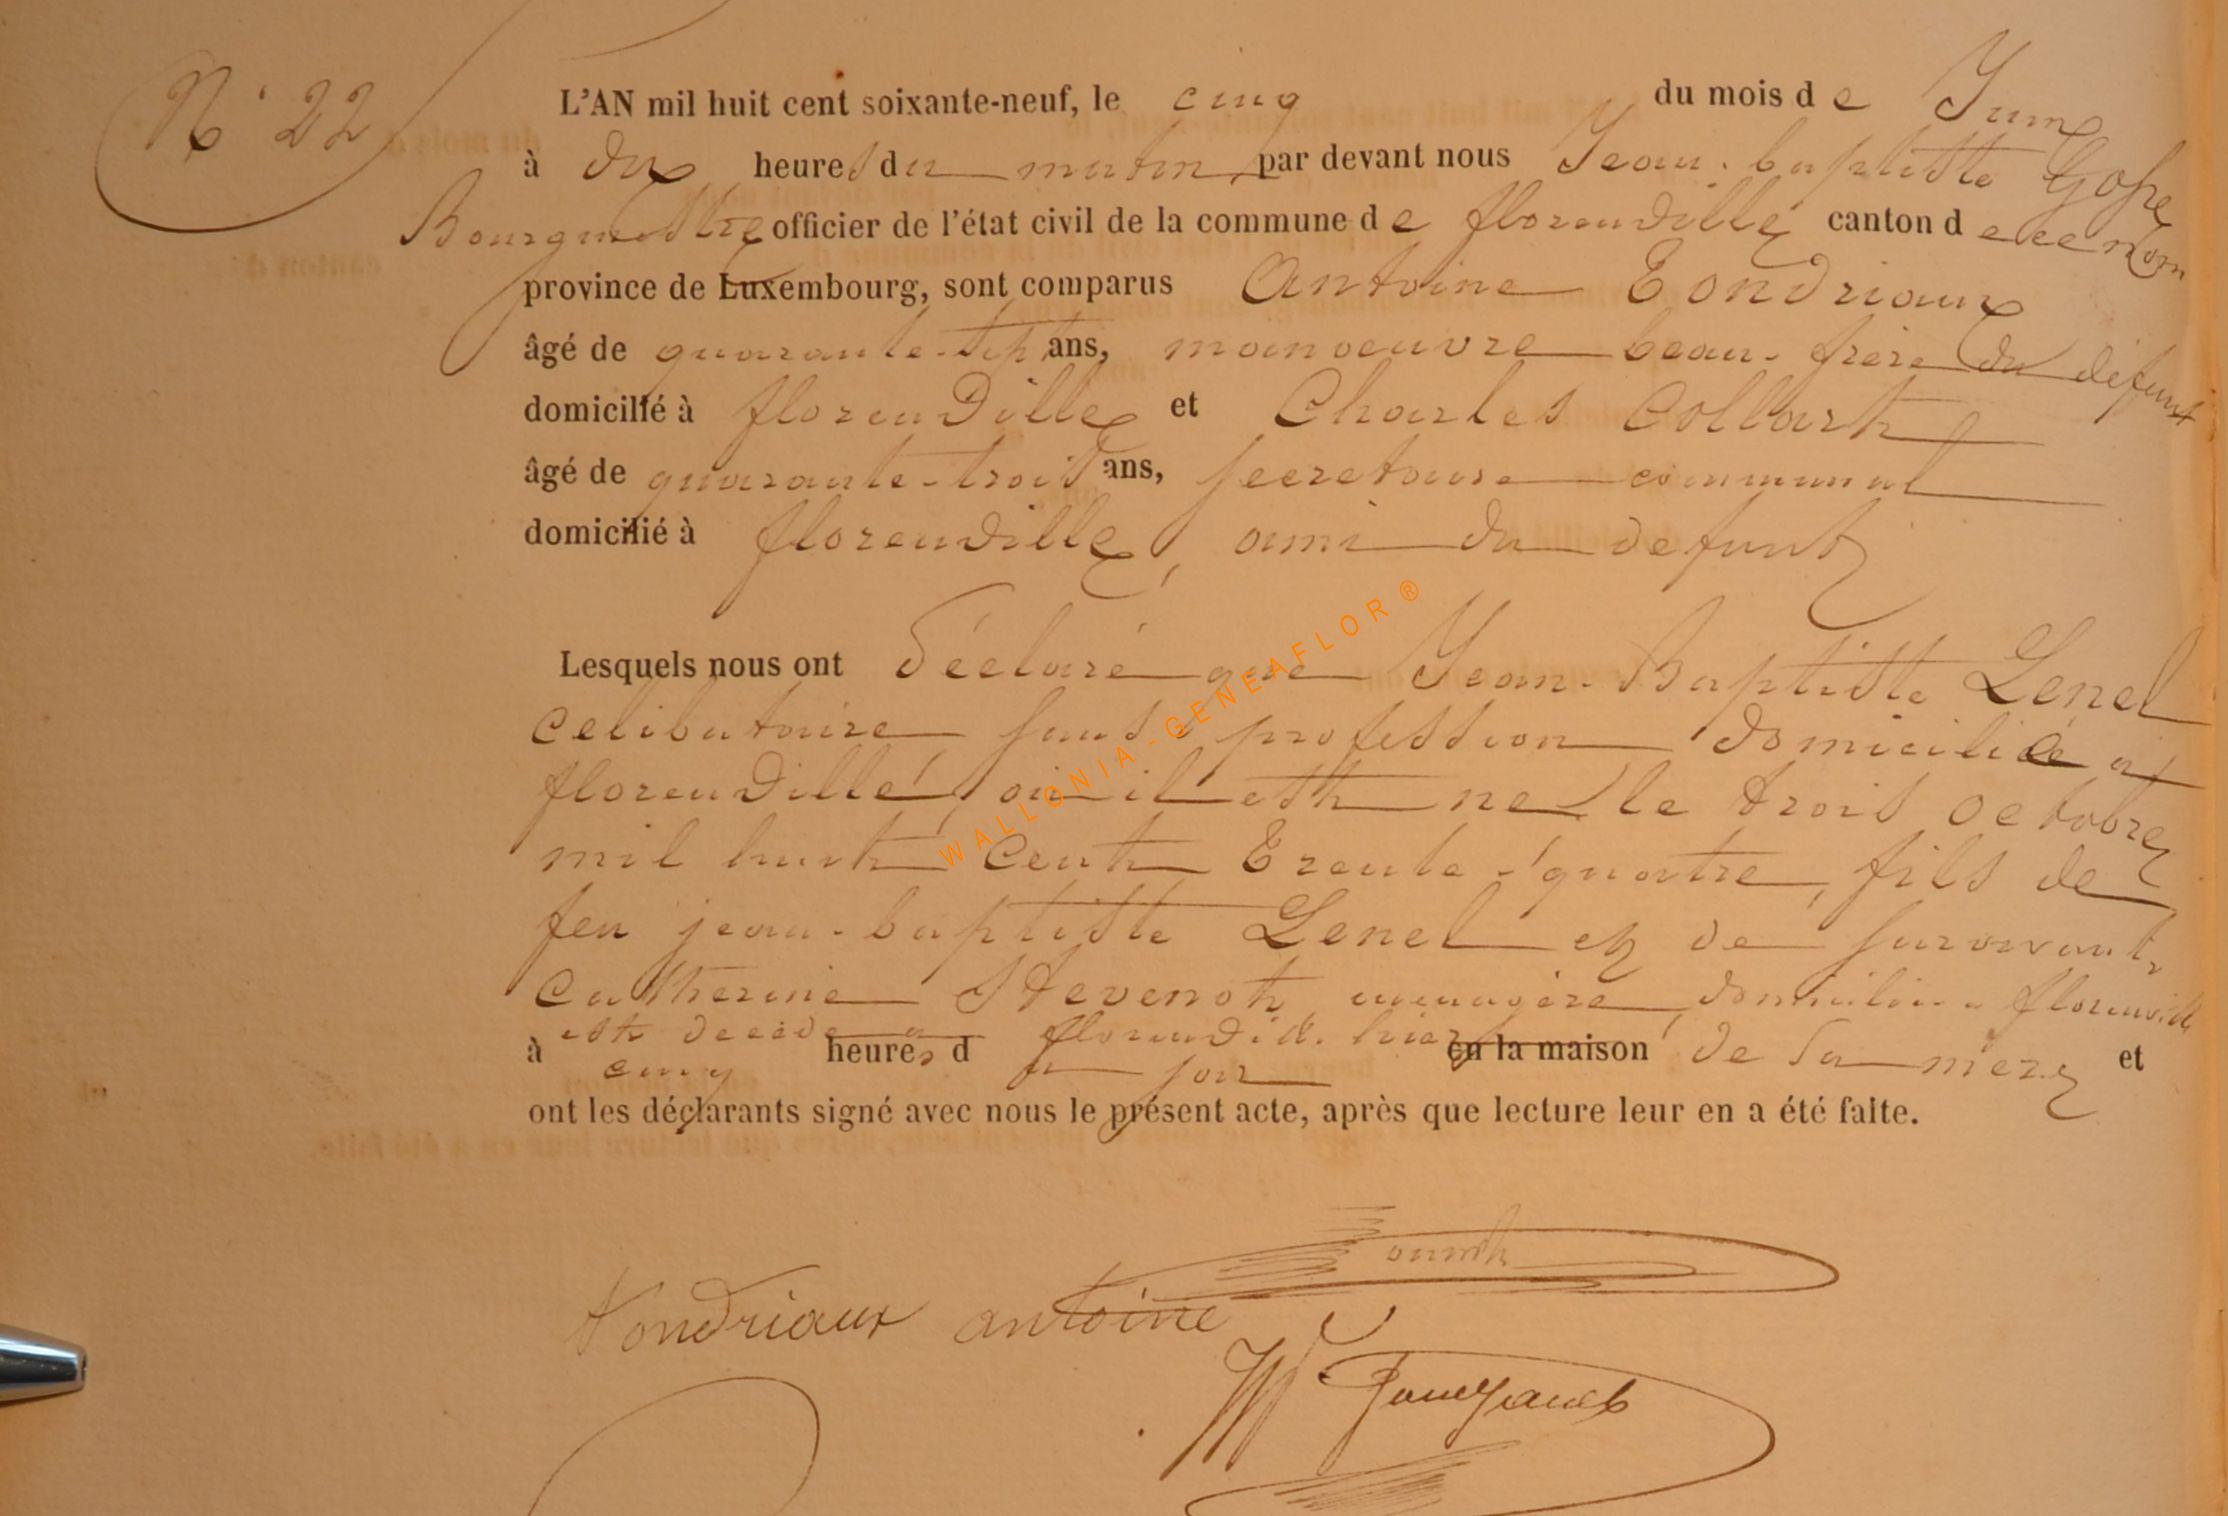 N° 22
L'AN mil huit cent soixante-neuf, le cinq du mois de Juin
à dix heures du matin par devant nous Jean-baptiste Gofre
Bourgmestre officier de l'état civil de la commune de florenville canton de ce nom
province de Luxembourg, sont comparus Antoine Tondriaux
âgé de quarante-sept ans, manoeuvre beau-frère du défunt
domicilié à florenville et Charles Collart
âgé de quarante-trois ans, secretaire communal
domicilié à florenville, ami du defunt
Lesquels nous ont déclaré que Jean-Baptiste Lenel
celibataire sans profession domicilié à
florenville, où il est né le trois octobre
mil huit cent Trente-quatre, fils de
feu jean-baptiste Lenel et de survivante
Catherine Stevenot menagère, domiciliée a florenville
est decédé a florenville hier
à cinq heures d u soir en la maison de sa mere et
ont les déclarants signé avec nous le présent acte, après que lecture leur en a été faite.
tondriaux antoine
WALLONIA-GENEAFLOR ®